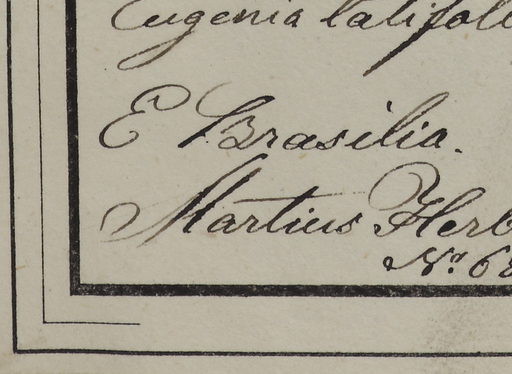 Eugenia latifoli
E Brasilia.
Martius Herb
No. 6